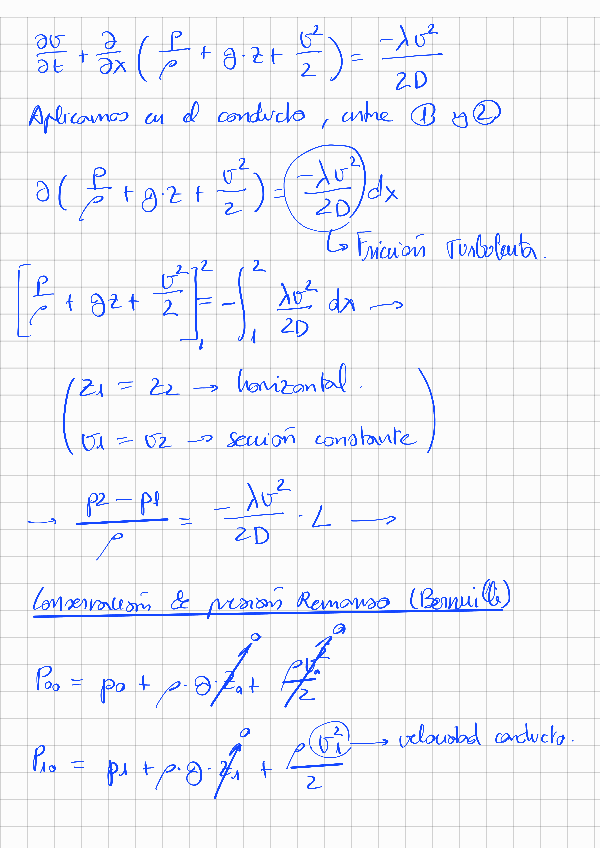 ∂v/∂t + ∂/∂x ( p/ρ + g·z + v²/2 ) = -λv²/2D
Aplicamos en el conducto, entre ① y ②
∂( p/ρ + g·z + v²/2 ) = -λv²/2D dx
↳ Fricción Turbolenta.
[ p/ρ + gz + v²/2 ]₁² = -∫₁² λv²/2D dx →
( z1 = z2 → horizontal.
v1 = v2 → sección constante )
→ (p2 - p1)/ρ = -λv²/2D · L →
Conservación de presión Remanso (Bernuilli)
P₀₀ = p0 + ρ·g·z₀ ↗0 + ρv₀²/2 ↗0
P₁₀ = p1 + ρ·g·z1 ↗0 + ρv₁²/2 → velocidad conducto.